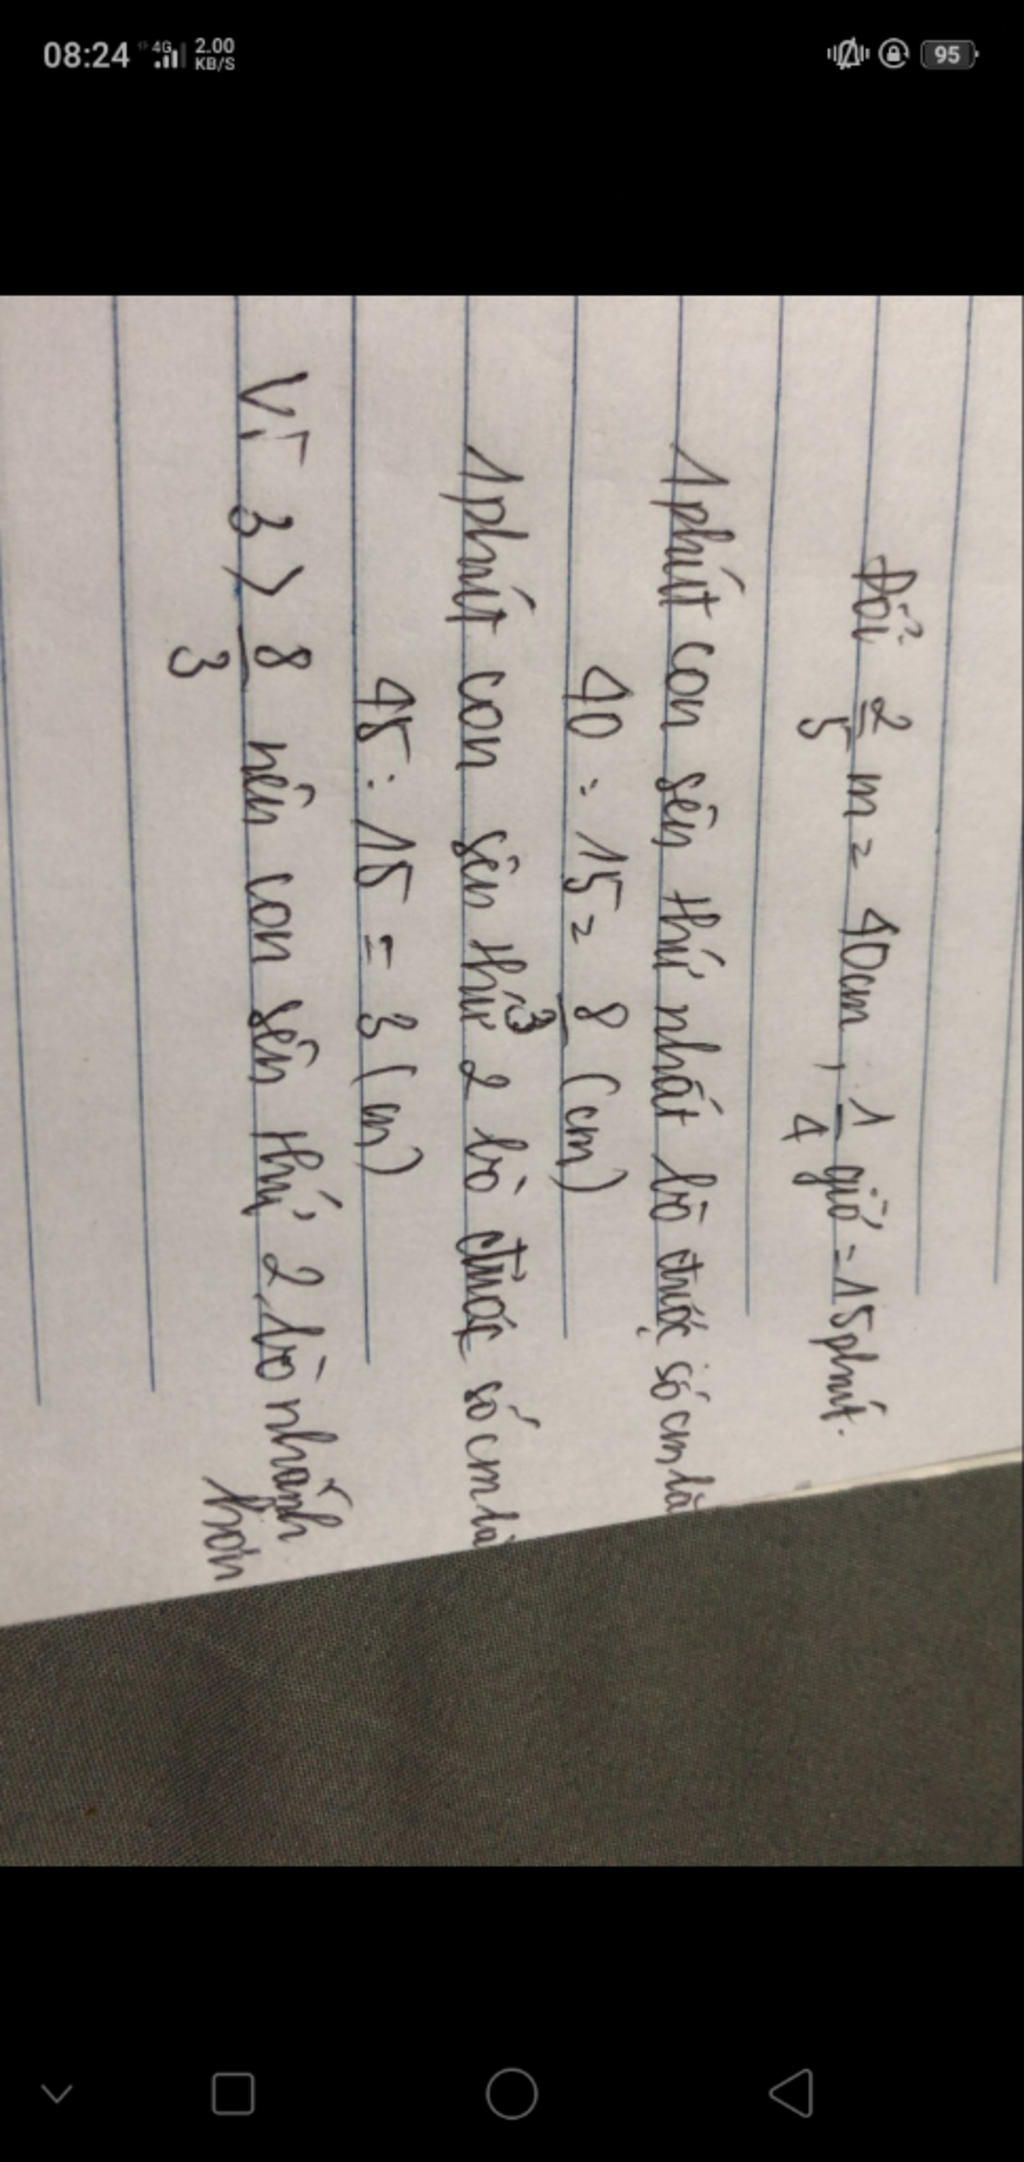 08:24 4G 2.00 KB/S 95
Đổi 2/5 m = 40cm, 1/4 giờ = 15phút.
1 phút con sên thứ nhất bò được số cm là
40 : 15 = 8/3 (cm)
1 phút con sên thứ 2 bò được số cm là
45 : 15 = 3 (m)
Vì 3 > 8/3 nên con sên thứ 2 bò nhanh
hơn